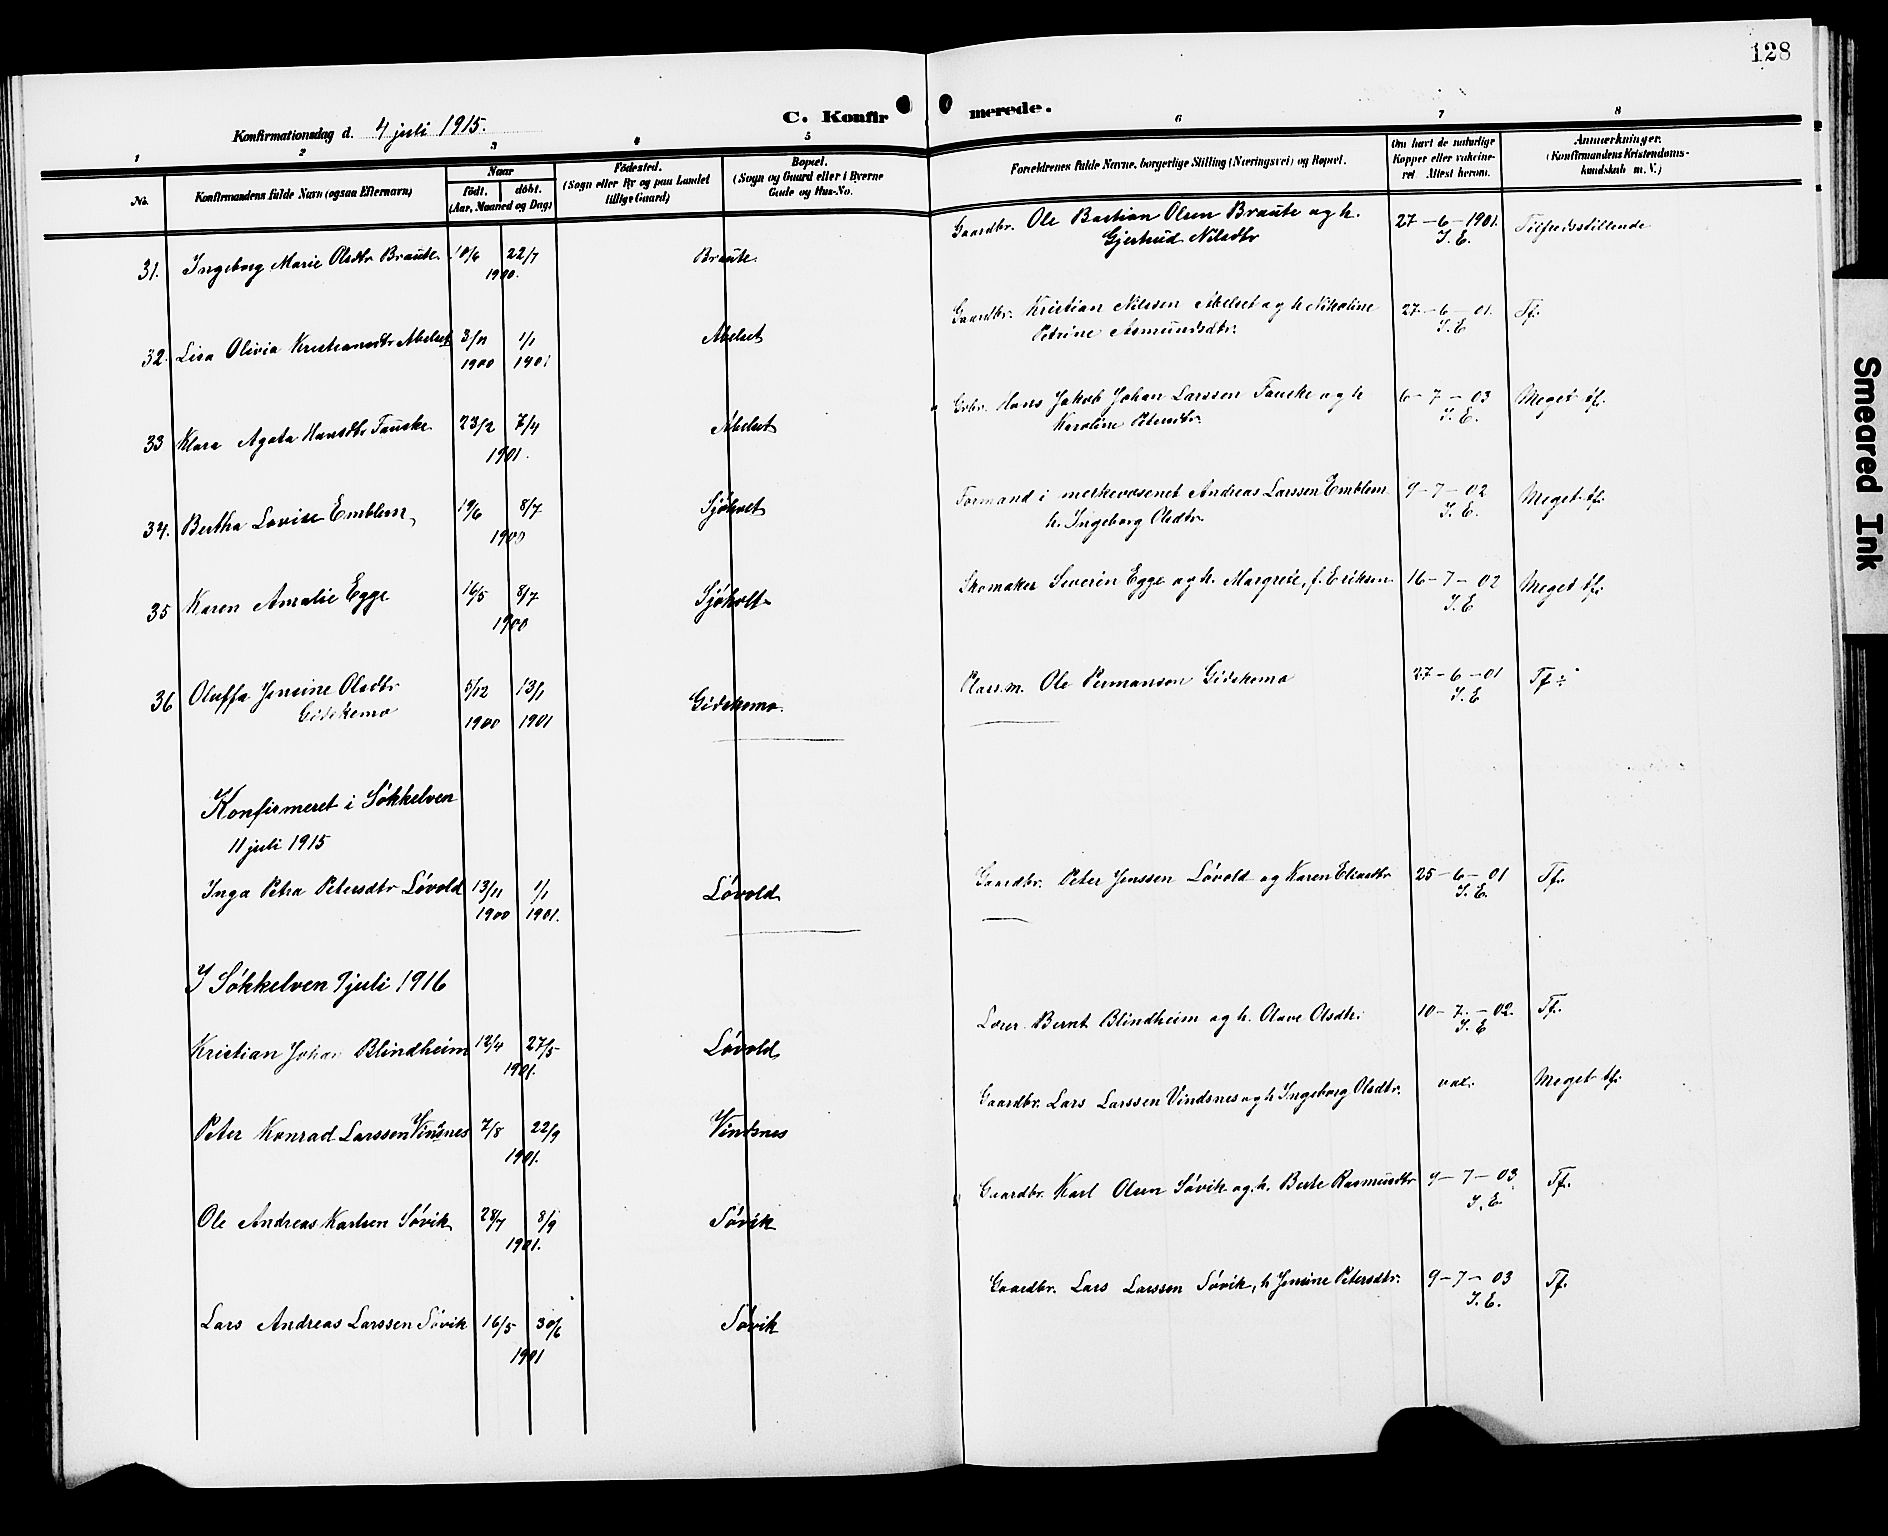 128
C. Konfirmerede.
Konfirmationsdag d. 4 juli 1915.
1 2 3 4 5 6 7 8
No.
Konfirmandens fulde Navn (ogsaa Efternavn)
Naar
født. døbt.
(Aar, Maaned og Dag)
Fødested.
(Sogn eller By og paa Landet
tillige Gaard)
Bopæl.
(Sogn og Gaard eller i Byerne
Gade og Hus-No.
Forældrenes fulde Navne, borgerlige Stilling (Næringsvei) og Bopæl.
Om havt de naturlige
Kopper eller vakcine-
ret Attest herom.
Anmærkninger.
(Konfirmandens Kristendoms-
kundskab m. V.)
31. Ingeborg Marie Olsdtr Braute 10/6 22/7 Braute Gaardbr. Ole Bastian Olsen Braute og h. 27-6-1901. Tilfredsstillende
1900. Gjertrud Nilsdtr I.E.
32. Lisa Olivia Kristiansdtr Abelset 3/11 1/1 Abelset Gaardbr. Kristian Nilssen Abelset og h. Nikoline 27-6-01. Tf.
1900 1901 Petrine Asmundsdtr. I.E
33 Klara Agata Hansdtr Fauske 23/2 7/4 Abelset Grbr. Hans Jakob Johan Larssen Fauske og h 6-7-03 Meget tf.
1901. Karoline Petersdtr. I.E.
34. Bertha Lovise Emblem 19/6 8/7 Sjøholt Formand i merkevæsenet Andreas Larssen Emblem 9-7-02 Meget tf.
1900 h. Ingeborg Olsdtr. I.E.
35 Karen Amalie Egge 16/5 8/7 Sjøholt Skomaker Severin Egge og h. Margrete, f. Eriksen 16-7-02 Meget tf.
1900 I.E
36 Oluffa Jensine Olsdtr 5/12 13/1 Gidskemo. Plassm. Ole Permanson Gidskemo 27-6-01 Tf.
Gidskemo 1900 1901 I.E
Konfirmeret i Søkkelven
11 juli 1915
Inga Petra Petersdtr Løvold 13/11 1/1 Løvold Gaardbr. Peter Jenssen Løvold og Karen Eliasdtr 25-6-01 Tf.
1900 1901. I.E.
I Søkkelven 9 juli 1916
Kristian Johan Blindheim 12/4 27/5 Løvold Lærer Bernt Blindheim og h. Olave Olsdtr. 10-7-02. Tf.
1901. I.E
Peter Konrad Larssen Vindsnes 7/8 22/9 Vindsnes Gaardbr. Lars Larssen Vindsnes og h Ingeborg Olsdtr. vac. Meget tf.
1901.
Ole Andreas Karlsen Søvik 28/7 8/9 Søvik Gaardbr. Karl Olsen Søvik og h. Berte Rasmusdtr 9-7-03 Tf.
1901. I.E.
Lars Andreas Larssen Søvik 16/5 30/6 Søvik Gaardbr. Lars Larssen Søvik, h Jensine Petersdtr. 9-7-03 Tf.
1901 I.E.
Smeared Ink